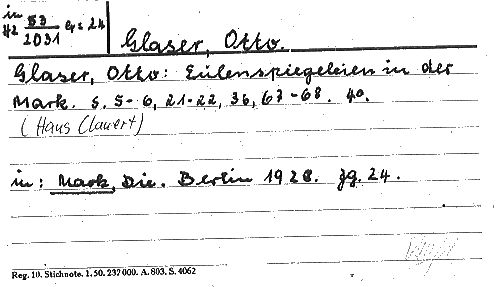 in 53 4: 24
42 2031
Glaser, Otto.
Glaser, Otto: Eulenspiegeleien in der
Mark. S. 5-6, 21-22, 36, 67-68. 40.
(Hans Clauert)
in: Mark, Die. Berlin 1928. Jg. 24.
Reg. 10. Stichnote. 1. 50. 237000. A. 803. S. 4062